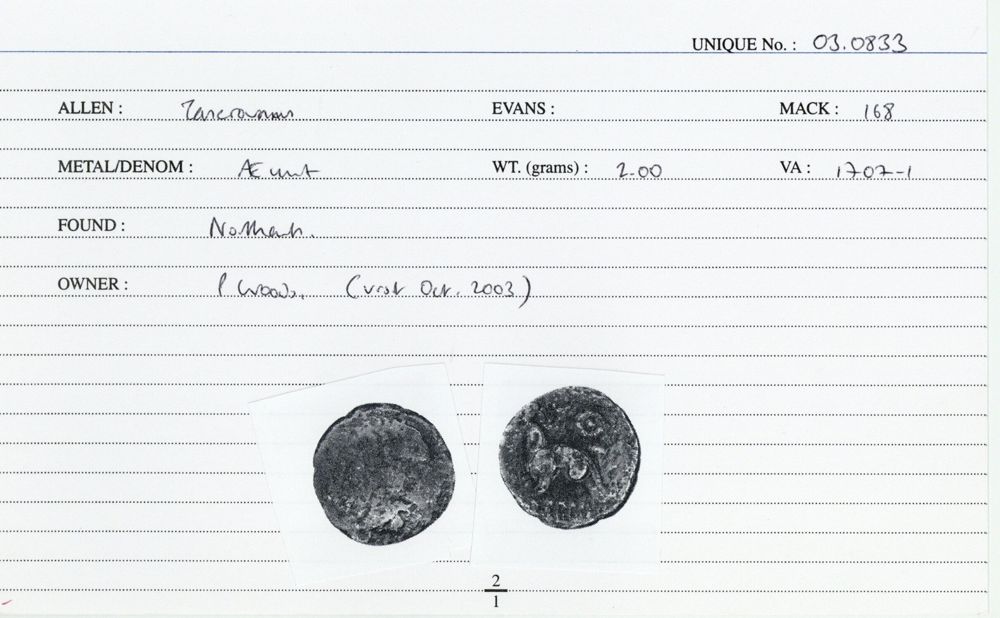 UNIQUE No. : 03.0833
ALLEN : Tasciovanus EVANS : MACK : 168
METAL/DENOM : Æ unit WT. (grams) : 2.00 VA : 1707-1
FOUND : Northants.
OWNER : P Woods. (visit Oct. 2003)
2
1